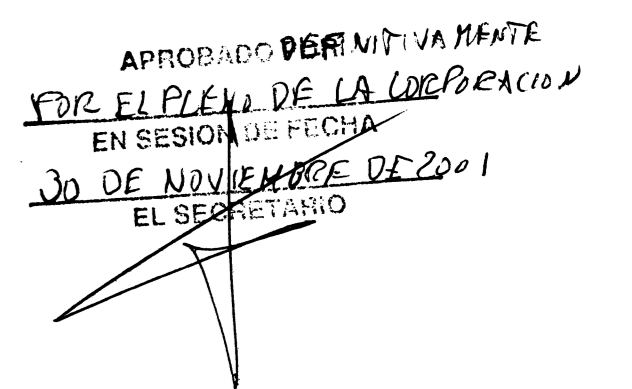 APROBADO DEFINITIVAMENTE
POR EL PLENO DE LA CORPORACION
EN SESION DE FECHA
30 DE NOVIEMBRE DE 2001
EL SECRETARIO